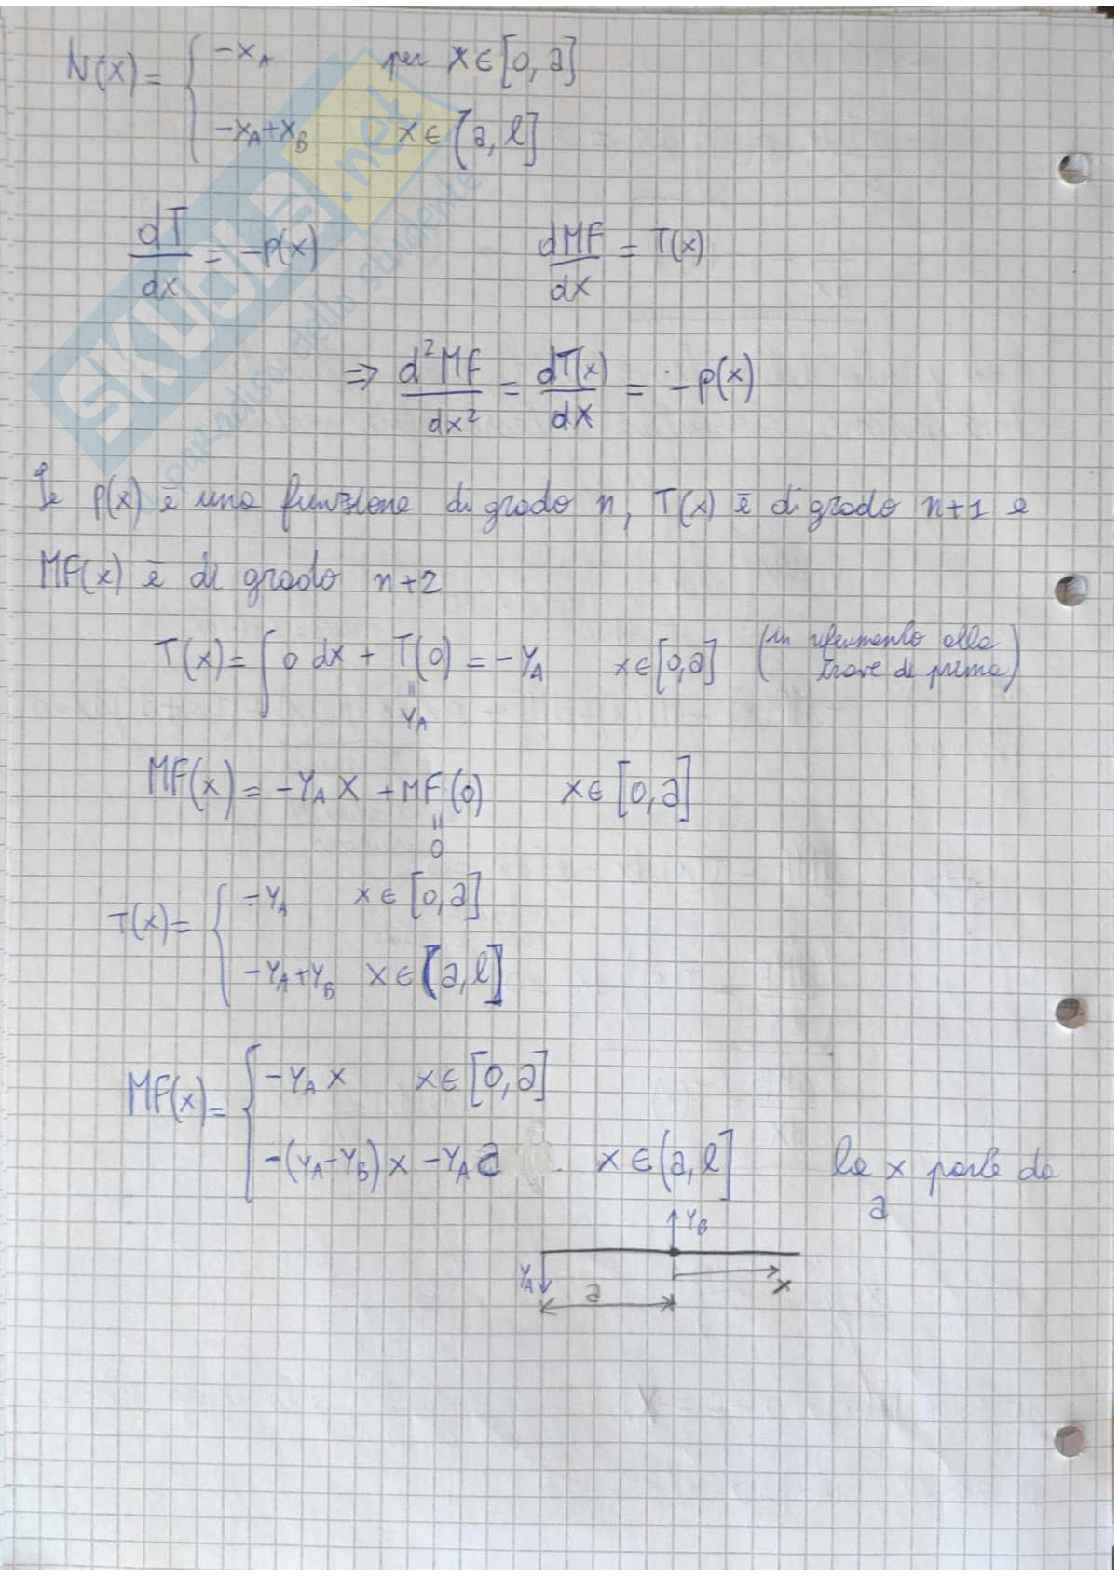 N(x) = { -x_A per x ∈ [0, a]
-x_A + x_B x ∈ (a, l]
dT/dx = -p(x) dMF/dx = T(x)
⇒ d²MF/dx² = dT(x)/dx = -p(x)
Se p(x) è una funzione di grado n, T(x) è di grado n+1 e
MF(x) è di grado n+2
T(x) = ∫ 0 dx + T(0) = -Y_A x ∈ [0, a] (in riferimento alla
trave di prima)
=
Y_A
MF(x) = -Y_A x + MF(0) x ∈ [0, a]
=
0
T(x) = { -Y_A x ∈ [0, a]
-Y_A + Y_B x ∈ (a, l]
MF(x) = { -Y_A x x ∈ [0, a]
-(Y_A - Y_B) x - Y_A a x ∈ (a, l] la x parte da
a
Y_B
Y_A
a
x
SKUOLA.net